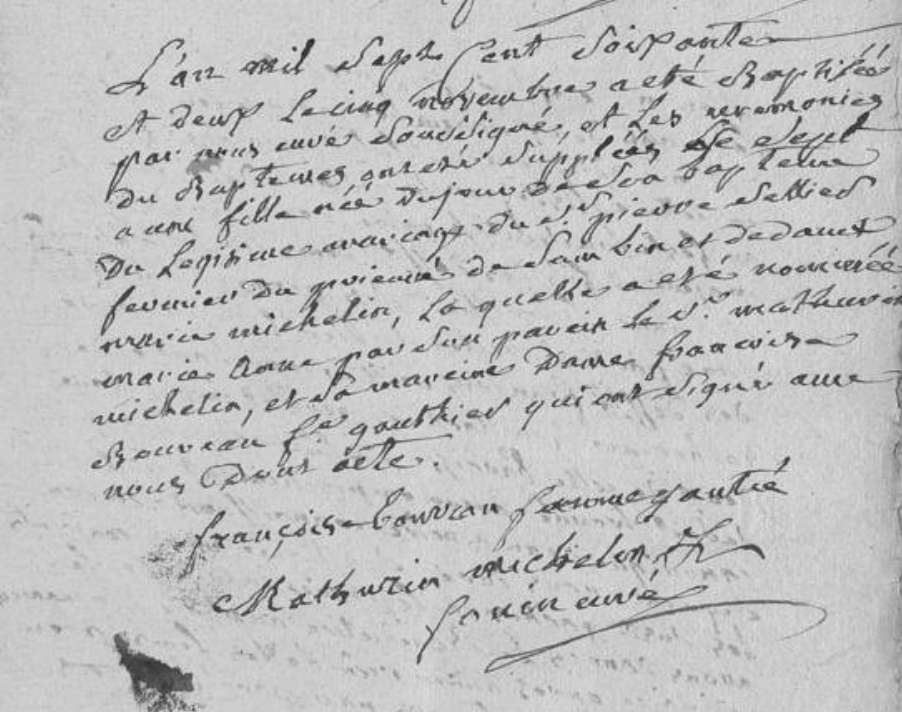 L'an mil sept Cent Soixante
et deux le cinq novembre a eté Baptisée
par nous curé Soussigné, et les ceremonies
du Baptemes ont eté Suppleés le Sept
a une fille née du jour de Son bapteme
Du Legitime mariage du Sr pierre Sellier
fermier du prieuré de et de dame
marie michelin, La quelle a eté nommée
marie Anne par Son parein le Sr. mathurin
michelin, et Sa mareine Dame francoise
Bouvran fe gauthier qui ont Signé avec
nous Dont acte.
françoise bouvran femme gautié
Mathurin michelin
curé